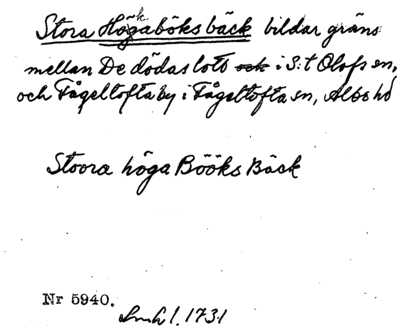 Stora Högaböks bäck bildar gräns
mellan De dödas lott och i S:t Olofs sn,
och Fågeltofta by i Fågeltofta sn, Albo hd
Stoora höga Bööks Bäck
Nr 5940.
1731